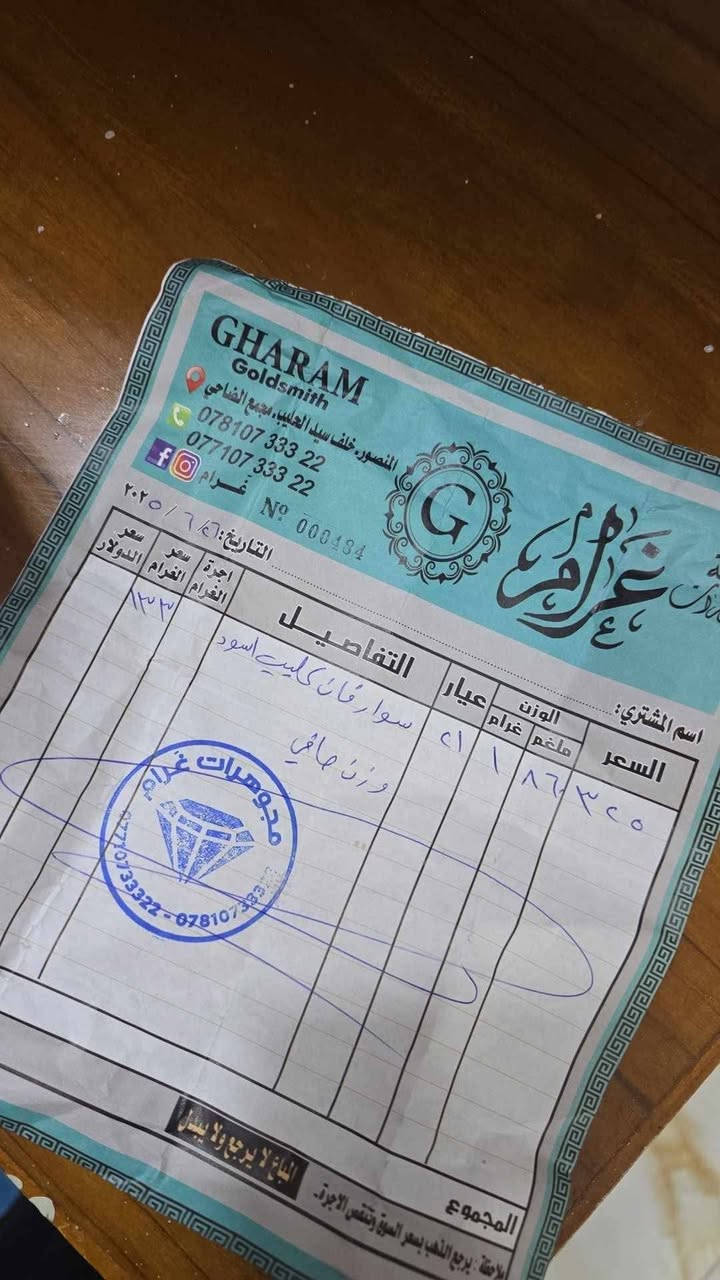 GHARAM
Goldsmith
المنصور، خلف سيد الحليب، مجمع الضاحي
078107 333 22
077107 333 22
غرام
Nº 000484
G
غرام
التاريخ: ٢٠٢٥ / ٦ / ٢٦
اسم المشتري:
السعر
الوزن
ملغم
غرام
عيار
التفاصيل
اجرة الغرام
سعر الغرام
سعر الدولار
٣٢٥
٨٦٠
١
٢١
سوار فان كليب اسود
١٣٣
وزن صافي
مجوهرات غرام
07710733322 - 07810733322
المجموع
المباع لا يرجع ولا يبدل
ملاحظة : يرجع الذهب بسعر السوق وتنقص الاجرة.